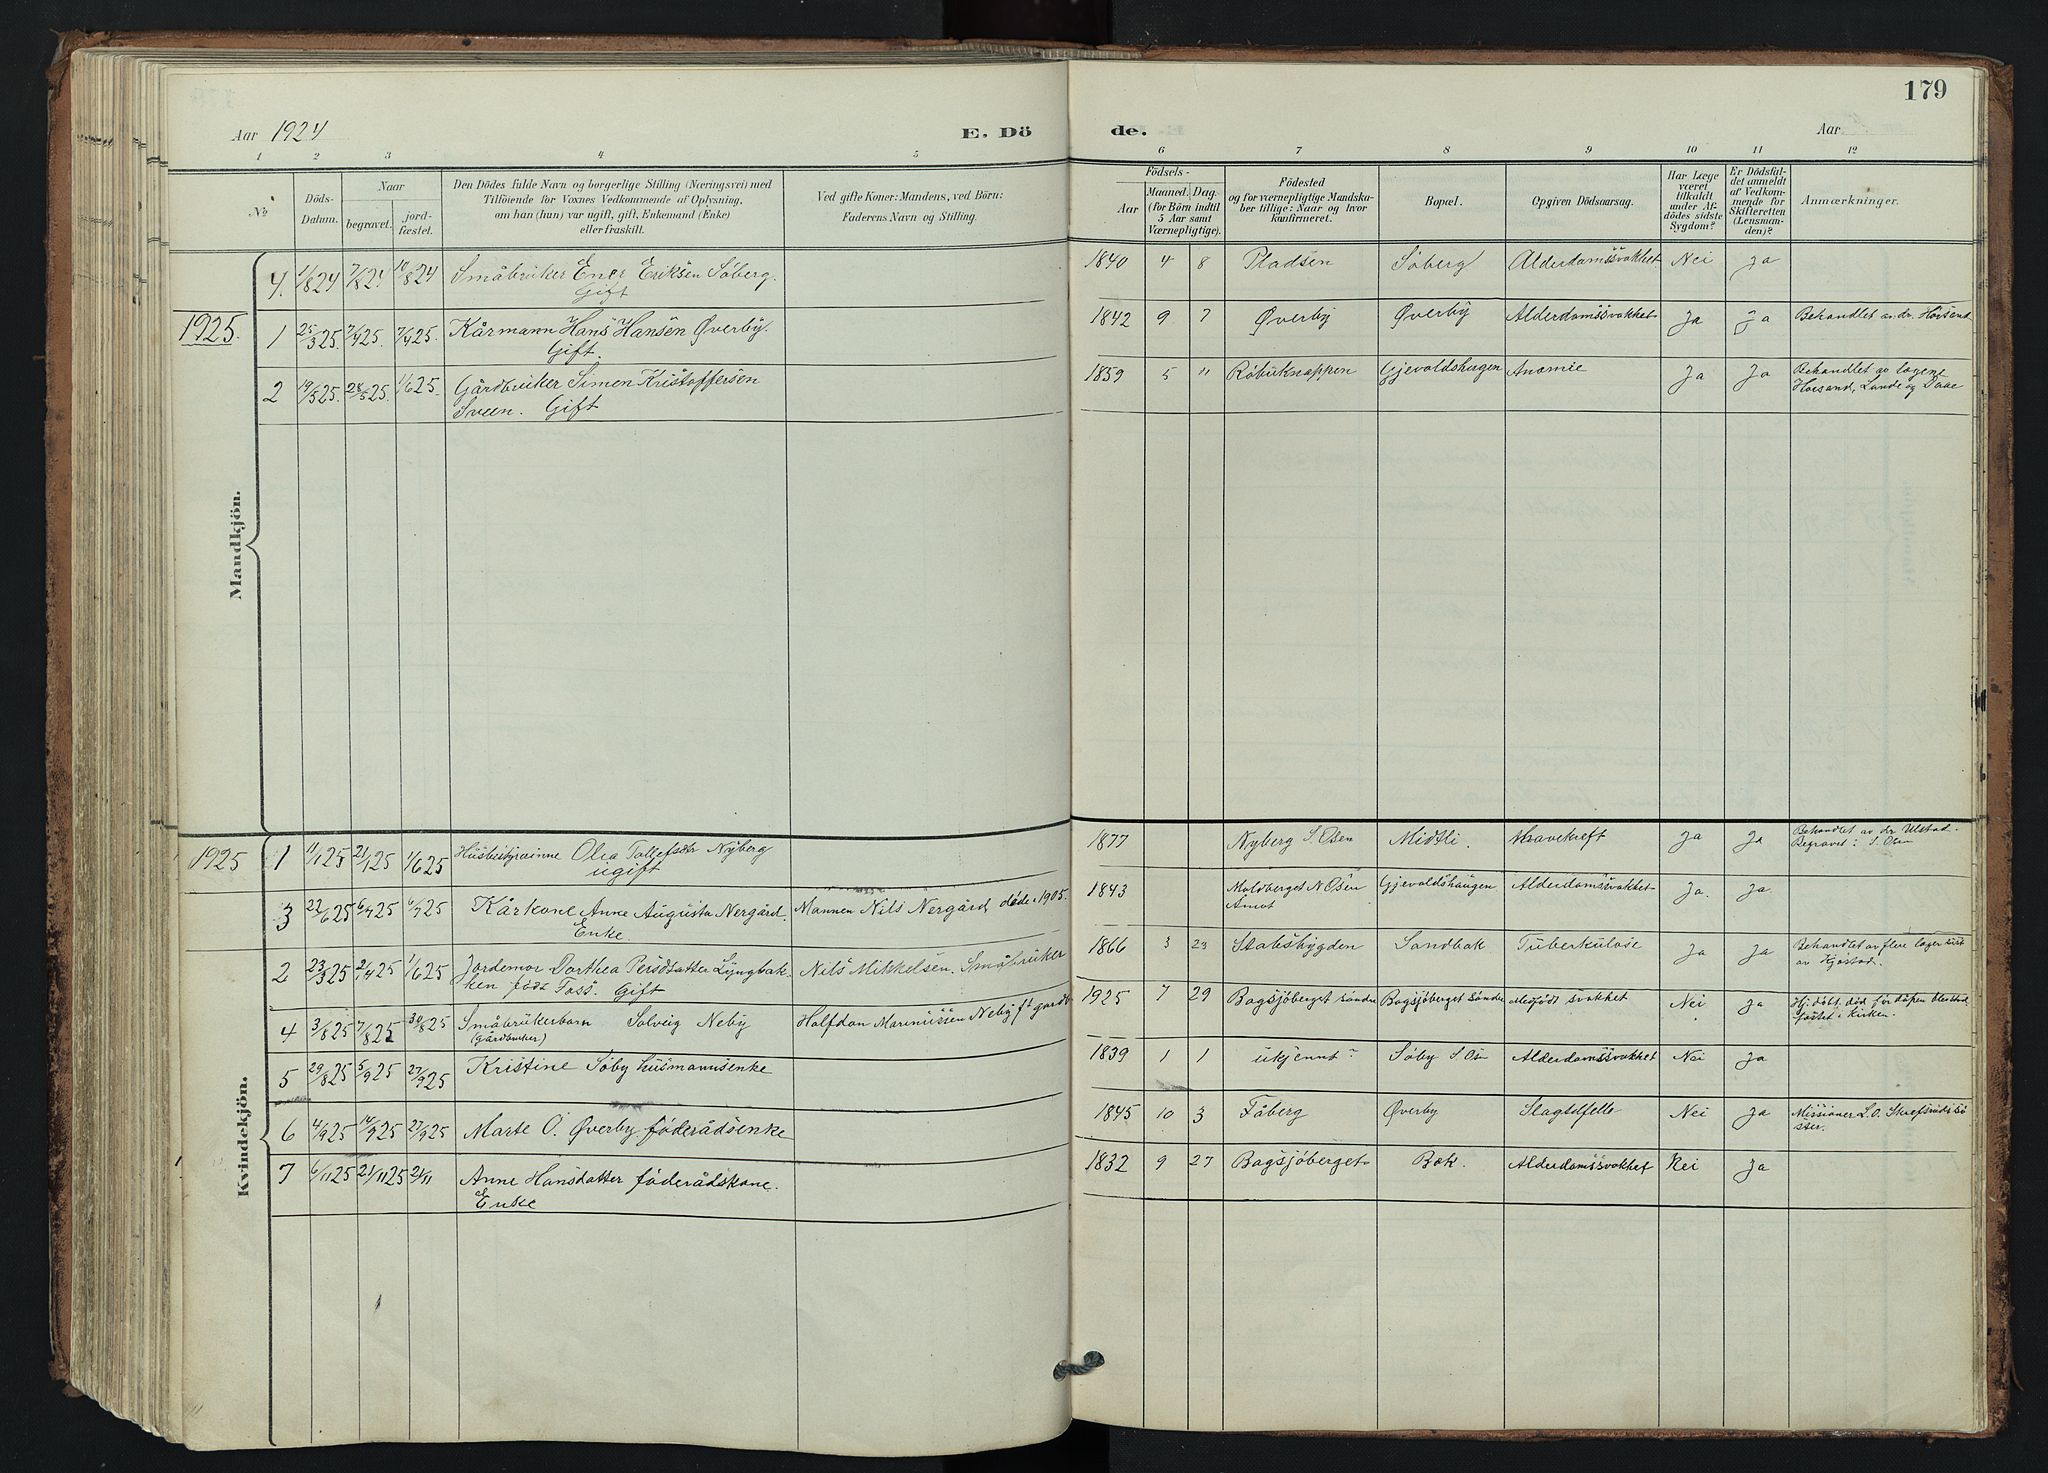 179
Aar 1924
E. Dö
de.
Aar
1 2 3 4 5 6 7 8 9 10 11 12
№
Döds-
Datum.
Naar
begravet.
jord-
fæstet.
Den Dödes fulde Navn og borgerlige Stilling (Næringsvei) med
Tilföiende for Voxnes Vedkommende af Oplysning,
om han (hun) var ugift, gift, Enkemand (Enke)
eller fraskilt.
Ved gifte Koner: Mandens, ved Börn:
Faderens Navn og Stilling.
Födsels-
Aar
Maaned.
Dag.
(for Börn indtil
5 Aar samt
Værnepligtige).
Födested
og for værnepligtige Mandska-
ber tillige: Naar og hvor
konfirmeret.
Bopæl.
Opgiven Dödsaarsag.
Har Læge
været
tilkaldt
under Af-
dödes sidste
Sygdom?
Er Dödsfal-
det anmeldt
af Vedkom-
mende for
Skifteretten
(Lensman-
den)?
Anmærkninger.
Mandkjön.
4. 1/8 24 7/8 24 10/8 24 Småbruker Ener Eriksen Søberg. 1840 4 8 Pladsen Søberg Alderdomssvakhet Nei Ja
Gift
1925.
1 25/3 25. 7/4 25. 7/4 25. Kårmann Hans Hansen Øverby. 1842 9 7 Øverby Øverby Alderdomssvakhet Ja Ja Behandlet av dr. Hovsend
Gift.
2 19/5 25. 28/5 25. 1/6 25. Gårdbruker Simen Kristoffersen 1859 5 11 Røbuknappen Gjevoldshaugen Anæmie Ja Ja Behandlet av lægene
Sveen. Gift Hovsand, Lunde og Daae
Kvindekjön.
1925 1 11/1 25 21/1 25 1/6 25 Husbestyrerinne Olea Tollefsdtr Nyberg 1877 Nyberg S. Osen Midtli. Mavekreft Ja Ja Behandlet av dr Ulstad.
ugift Begravet: S. Osen
3 22/6 25 6/7 25 6/7 25 Kårkone Anne Augusta Nergård. Mannen Nils Nergård døde i 1905. 1843 Moldberget N Osen Gjevoldshaugen Alderdomssvakhet Ja. Ja.
Enke. Amot
2 23/3 25 2/4 25 1/6 25 Jordemor Dorthea Persdatter Lyngbak- Nils Mikkelsen. Småbruker 1866 3 23 Stabsbygden Sandbak Tuberkulose Ja Ja Behandlet av flere læger sist
ken født Foss. Gift av Hjøstad.
4 3/8 25 7/8 25 30/8 25 Småbrukerbarn Solveig Neby Halfdan Marinussen Neby ft gårdb 1925 7 29 Bagsjøberget søndre Bagsjøberget søndre Medfødt svakhet Nei Ja Hj. døbt, død før dåpen blev stad-
(gårdbruker) fæstet i kirken.
5 29/8 25 5/9 25 27/9 25 Kristine Søby husmannsenke 1839 1 1 ukjennt? Søby S Osen Alderdomssvakhet Nei Ja
6 4/9 25 14/9 25 27/9 25 Marte O. Øverby føderådsenke 1845 10 3 Fåberg Øverby Slagtilfelle Nei Ja Missionær L.O. Skrefsruds sø
ster.
7 6/11 25 21/11 25 21/11 Anne Hansdatter føderådskone. 1832 9 27 Bagsjøberget Bæk. Alderdomssvakhet Nei Ja
Enke